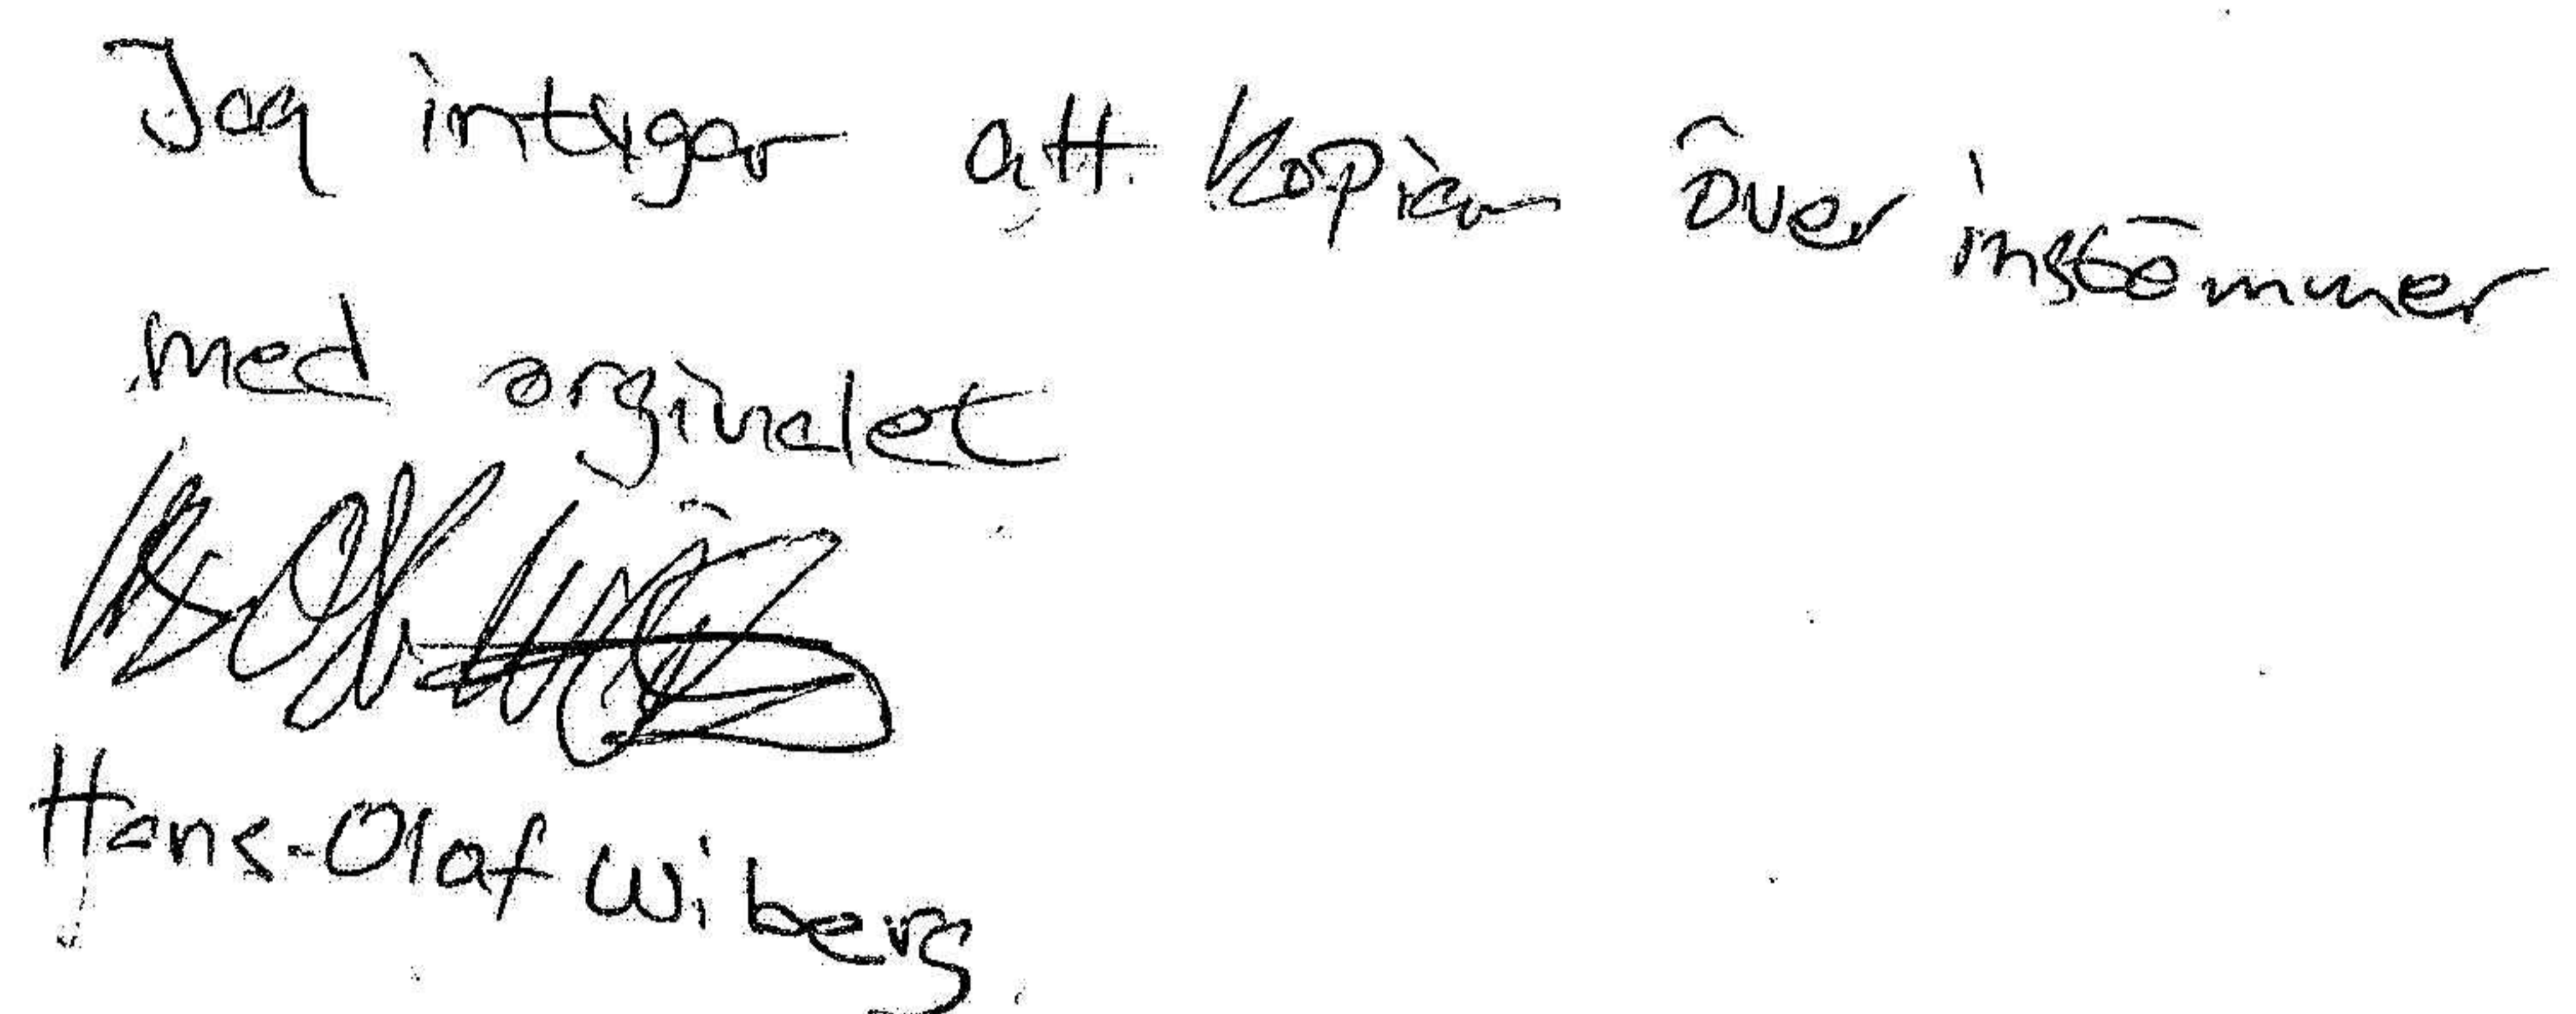 Jag intygar att kopian över instömmer
med orginalet
Hans-Olaf Wiberg